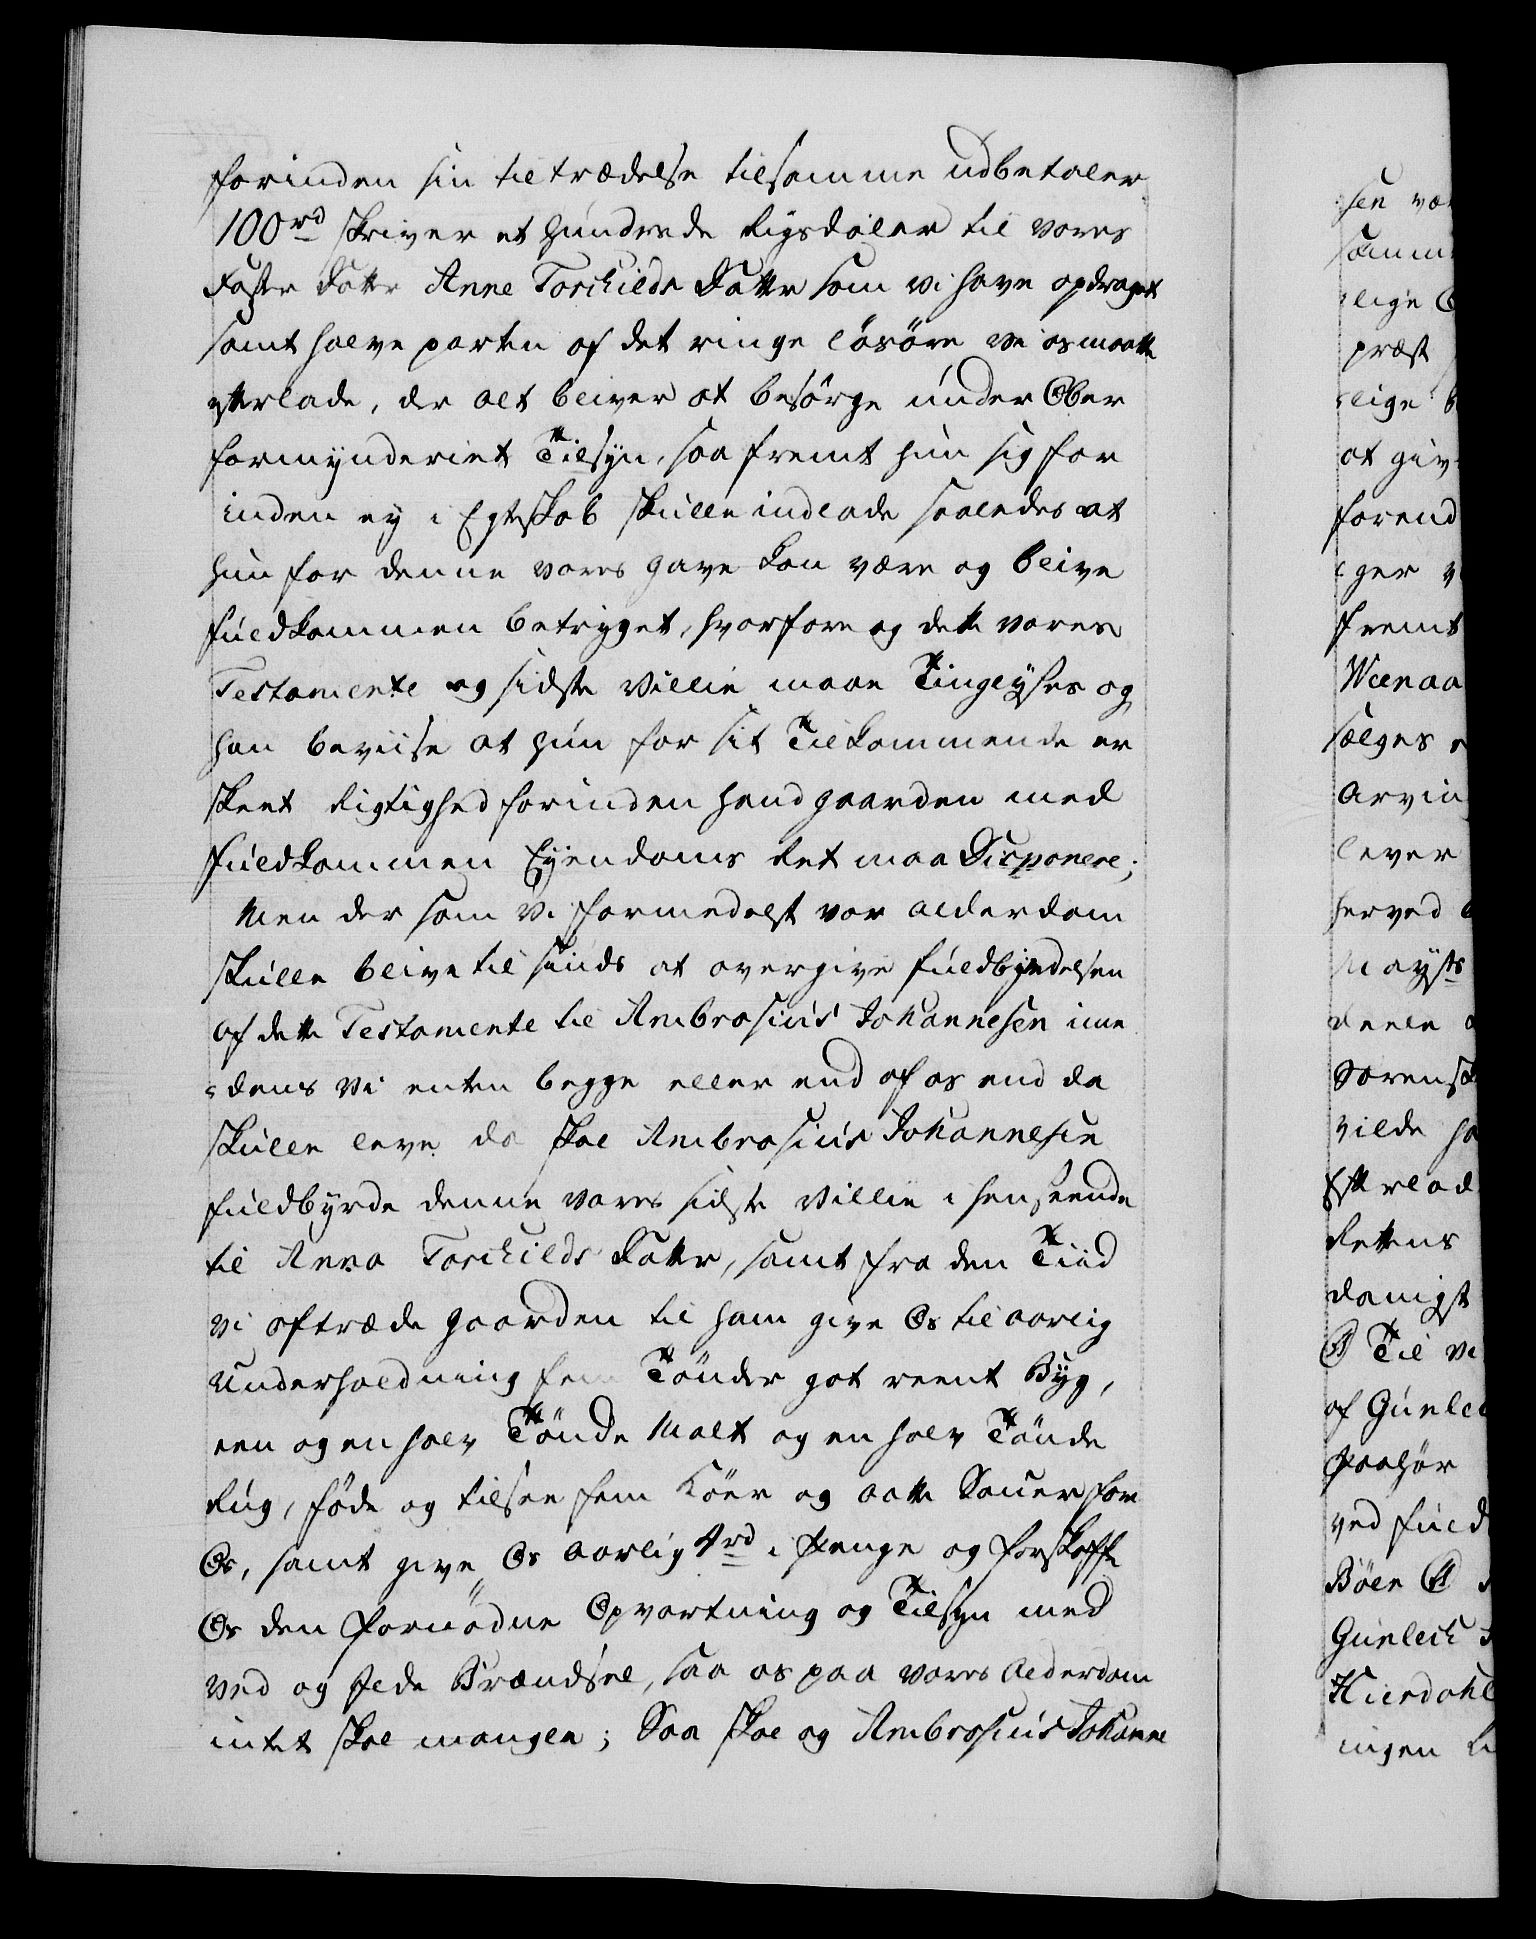 forinden sin tiltrædelse tilsamme udbetaler
100rd skriver et hundrede Rigsdaler til vores
Foster Datter Anne Torchilds Datter som vi have opdraget
samt halve parten af det ringe løsøre vi os maatte
efterlade, der alt bliver at besørge under Ober
formynderiet Tilsyn, saa fremt hun sig for
inden ey i Egteskab skulle indlade saaledes at
hun for denne vores gave kan være og blive
fuldkommen betrygget, hvorfore og dette vores
Testamente og sidste Villie maae Tinglyses og
han beviise at hun for sit Tilkommende er
skeet Rigtighed forinden hand gaarden med
fuldkommen Eyendoms Ret maa Disponere;
Men der som vi formedelst vor alderdom
skulle blive til sinds at overgive fuldbyrdelsen
af dette Testamente til Ambrosius Johannesen ime
dens vi enten begge eller end af os end da
skulle leve da skal Ambrosius Johannesen
fuldbyrde denne vores sidste Villie i henseende
til Anna Torchilds Datter, samt fra den Tiid
vi aftræde gaarden til ham give Os til aarlig
Underholdning fem Tønder got reent Byg,
een og en halv Tønde Malt og en halv Tønde
Rug, føde og tilsee fem Køer og aatte Sauer for
Os, samt give Os aarlig 4rd i Penge og forskaffe
Os den fornødne Opvartning og Tilsyn med
Ved og Fede Brændsel, saa os paa vores Alderdom
intet skal mangle; Saa skal og Ambrosius Johanne
sen væ
samm
lige
præst
lige b
at giv
forend
ger v
fremt
Weenaa
sælges
Arvin
lever
herved
Mayts
deele
Sorensk
vilde ha
Efterlad
Rettens
danigst
Til ve
af Gunle
paahør
ved fuld
Böen
Gunleik
Hierdahl
ingen